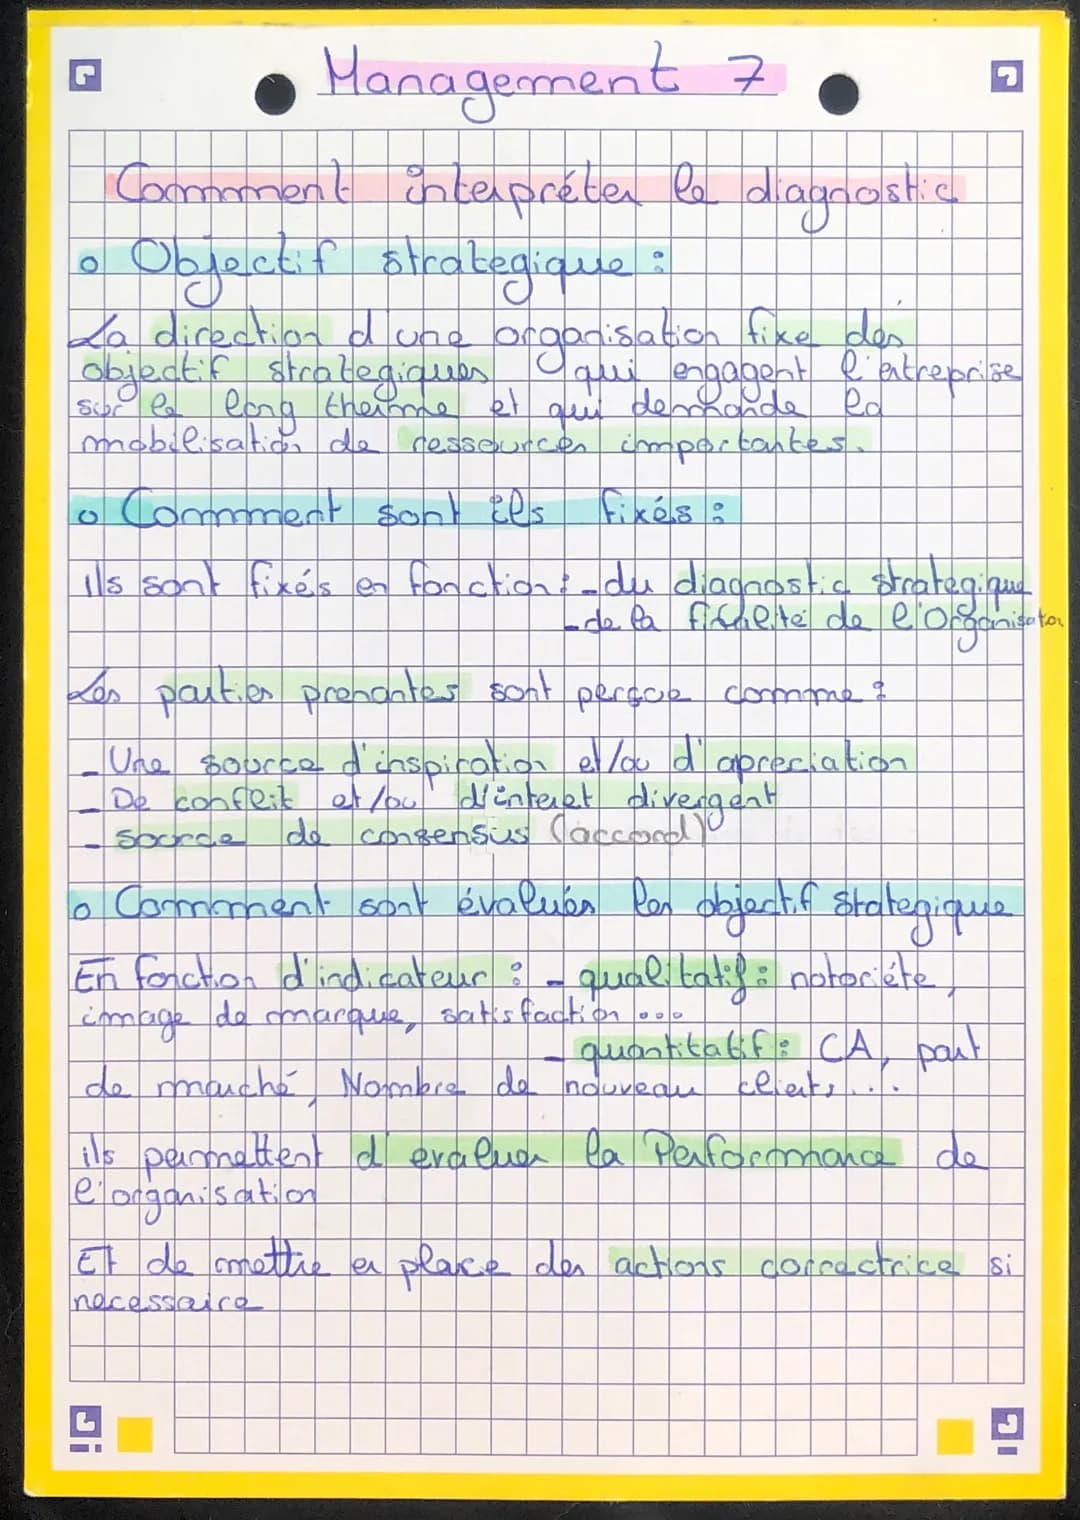 Management 7
Comment interpréter le diagnostic
o Objectif strategique :
La direction d'une organisation fixe des
objectif strategiques qui engagent l'entreprise
sur le long therme et qui demande la
mobilisation de ressources importantes.
o Comment sont ils fixés :
ils sont fixés en fonction : - du diagnostic strategique
- de la de l'Organisation
Les parties prenantes sont perçue comme :
- Une source d'inspiration et/ou d'apreciation
- De conflit et/ou d'interet divergent
- source de consensus (accord)
o Comment sont évalués les objectif stategique
En fonction d'indicateur : - qualitatif : notoriéte,
image de marque, satisfaction ...
- quantitatif : CA, part
de marché, Nombre de nouveau clients...
ils permettent d'evaluer la Performance de
l'organisation
Et de mettre en place des actions correctrice si
necessaire